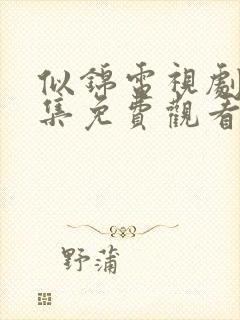 似錦雷視劇
集免費觀看
野蒲